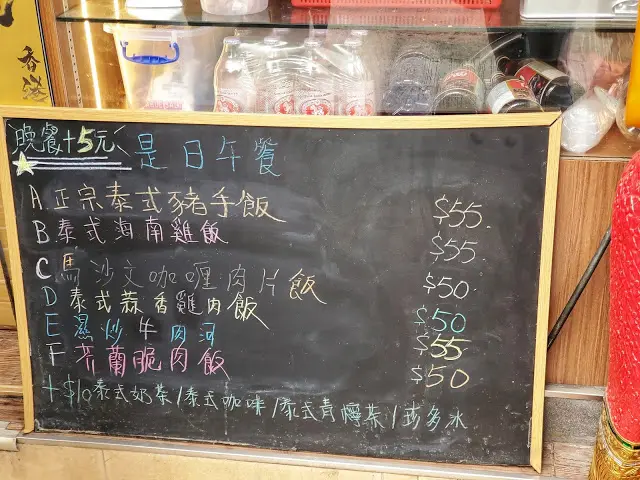 香港
晚餐+5元
是日午餐
A 正宗泰式豬手飯 $55.
B. 泰式海南雞飯 $55.
C 馬沙文咖喱肉片飯 $50
D 泰式蒜香雞肉飯 $50
E 濕炒牛肉河 $55
F 芥蘭脆肉飯 $50
+$10泰式奶茶/泰式咖啡/泰式青檸茶/